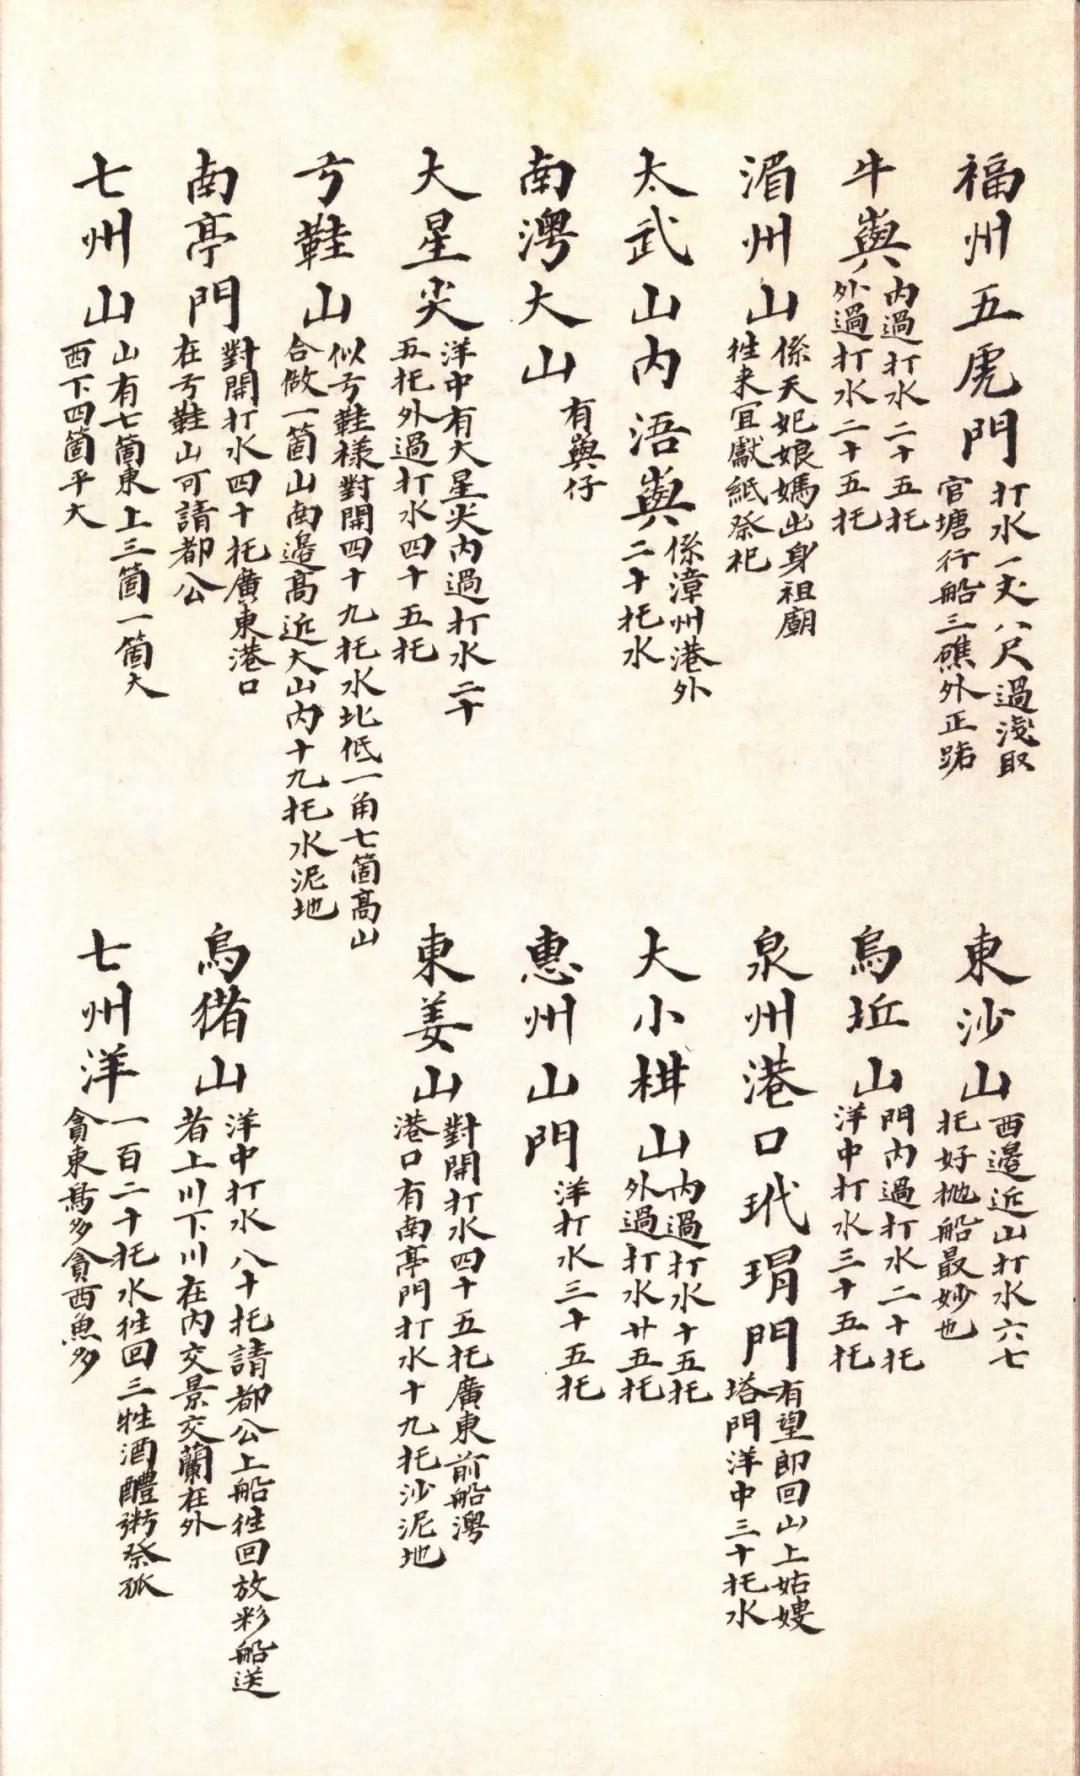 福州五虎門
打水一丈八尺過淺取
官塘行船三礁外正路
東沙山
西邉近山打水六七
托好抛船最妙也
牛嶼
内過打水二十五托
外過打水二十五托
烏坵山
門内過打水二十托
洋中打水三十五托
湄州山
係天妃娘媽出身祖廟
徃来宜獻紙祭祀
泉州港口玳瑁門
有望郎回山上姑嫂
塔門洋中三十托水
太武山内浯嶼
係漳州港外
二十托水
大小柑山
内過打水十五托
外過打水廿五托
南澳大山
有嶼仔
惠州山門
洋打水三十五托
大星尖
洋中有大星尖内過打水二十
五托外過打水四十五托
東姜山
對開打水四十五托廣東前船澳
港口有南亭門打水十九托沙泥地
弓鞋山
似弓鞋樣對開四十九托水北低一角七箇高山
合做一箇山南邉高近大山内十九托水泥地
南亭門
對開打水四十托廣東港口
在弓鞋山可請都公
烏猪山
洋中打水八十托請都公上船徃回放彩船送
者上川下川在内交景交蘭在外
七州山
山有七箇東上三箇一箇大
西下四箇平大
七州洋
一百二十托水徃回三牲酒醴粥祭孤
貪東鳥多貪西魚多